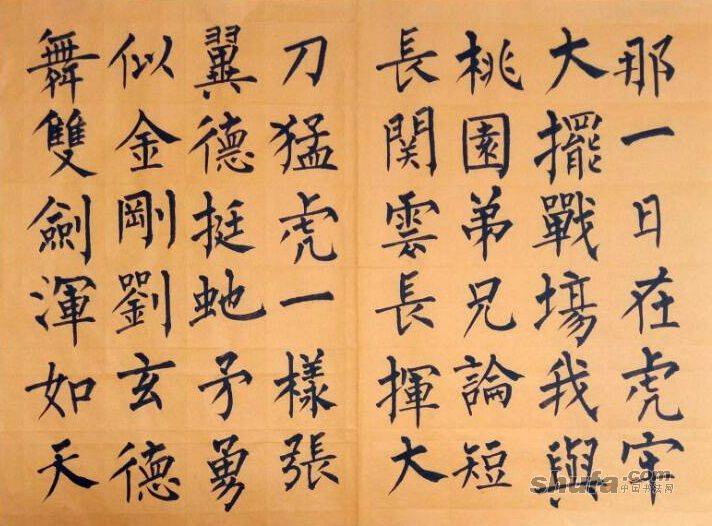 那一日在虎牢
大擺戰場我與
桃園弟兄論短
長関雲長揮大
刀猛虎一樣張
翼德挺虵矛勇
似金剛劉玄德
舞雙劍渾如天
shufa.com
中国书法网